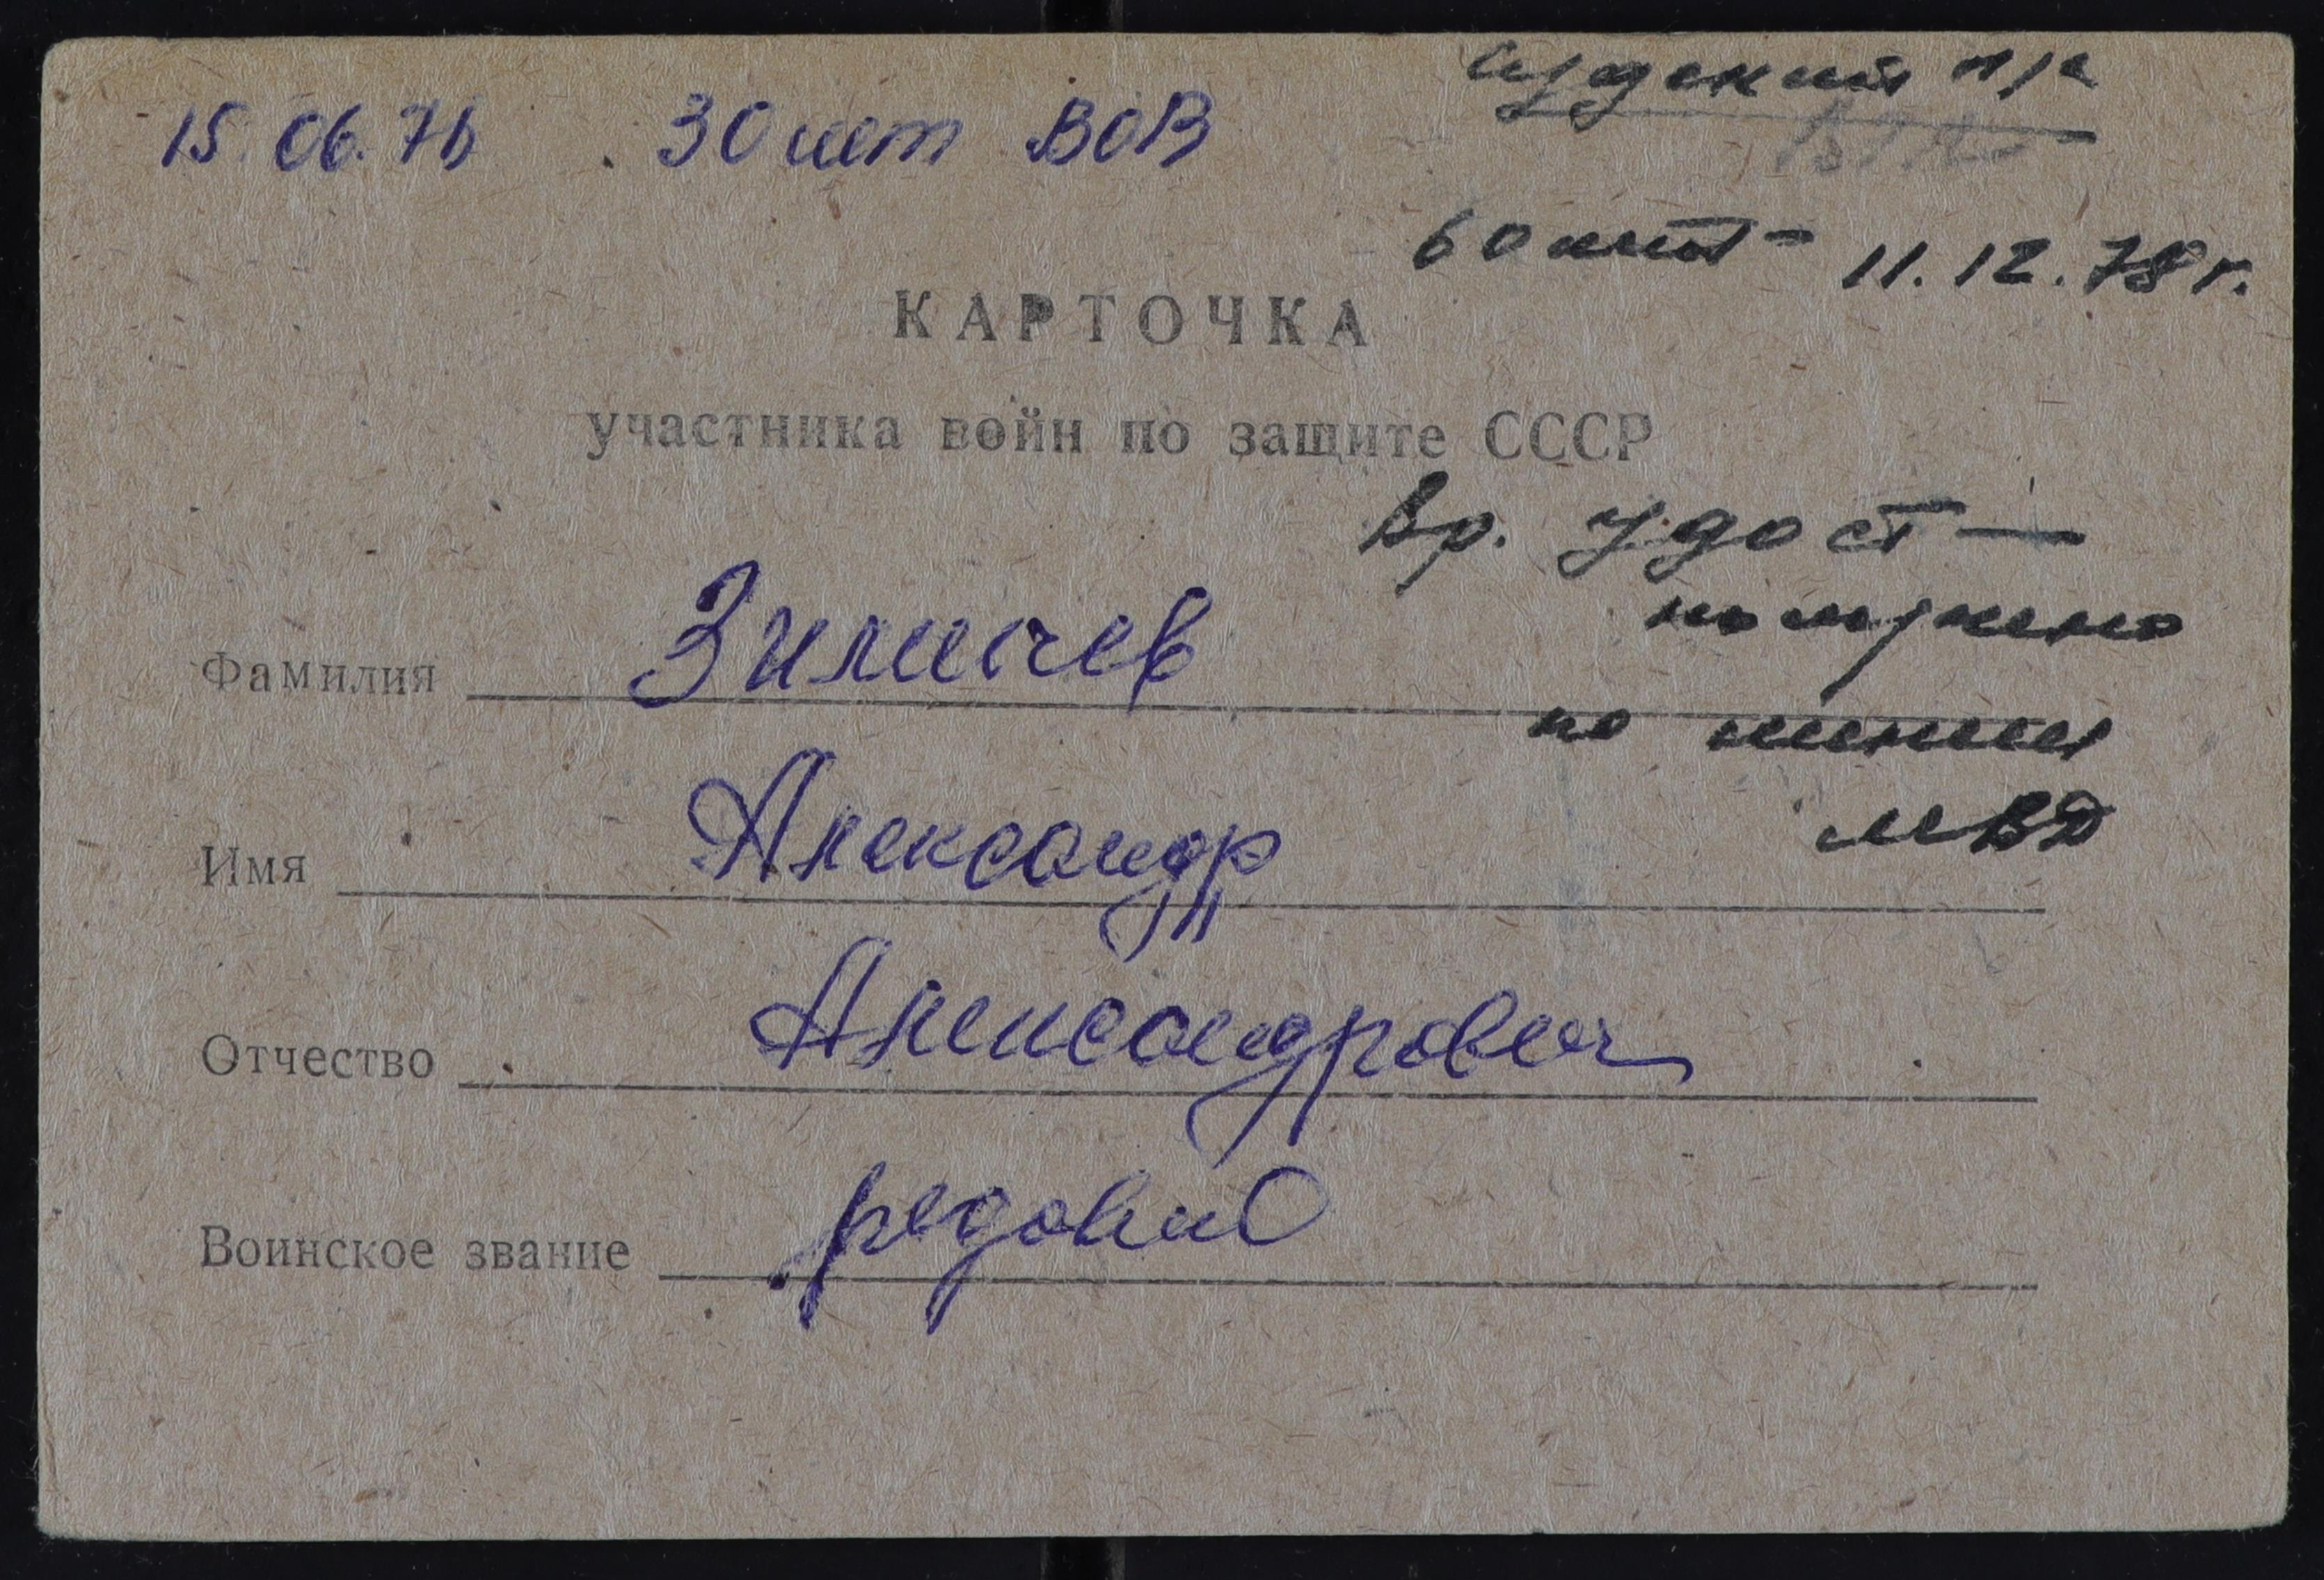 Судский п/с
15.06.76 30 лет ВОВ
60 лет - 11.12.78 г.
КАРТОЧКА
участника войн по защите СССР
Вр. удост —
получено
по линии
МВД
Фамилия Зимичев
Имя Александр
Отчество Александрович
Воинское звание рядовой